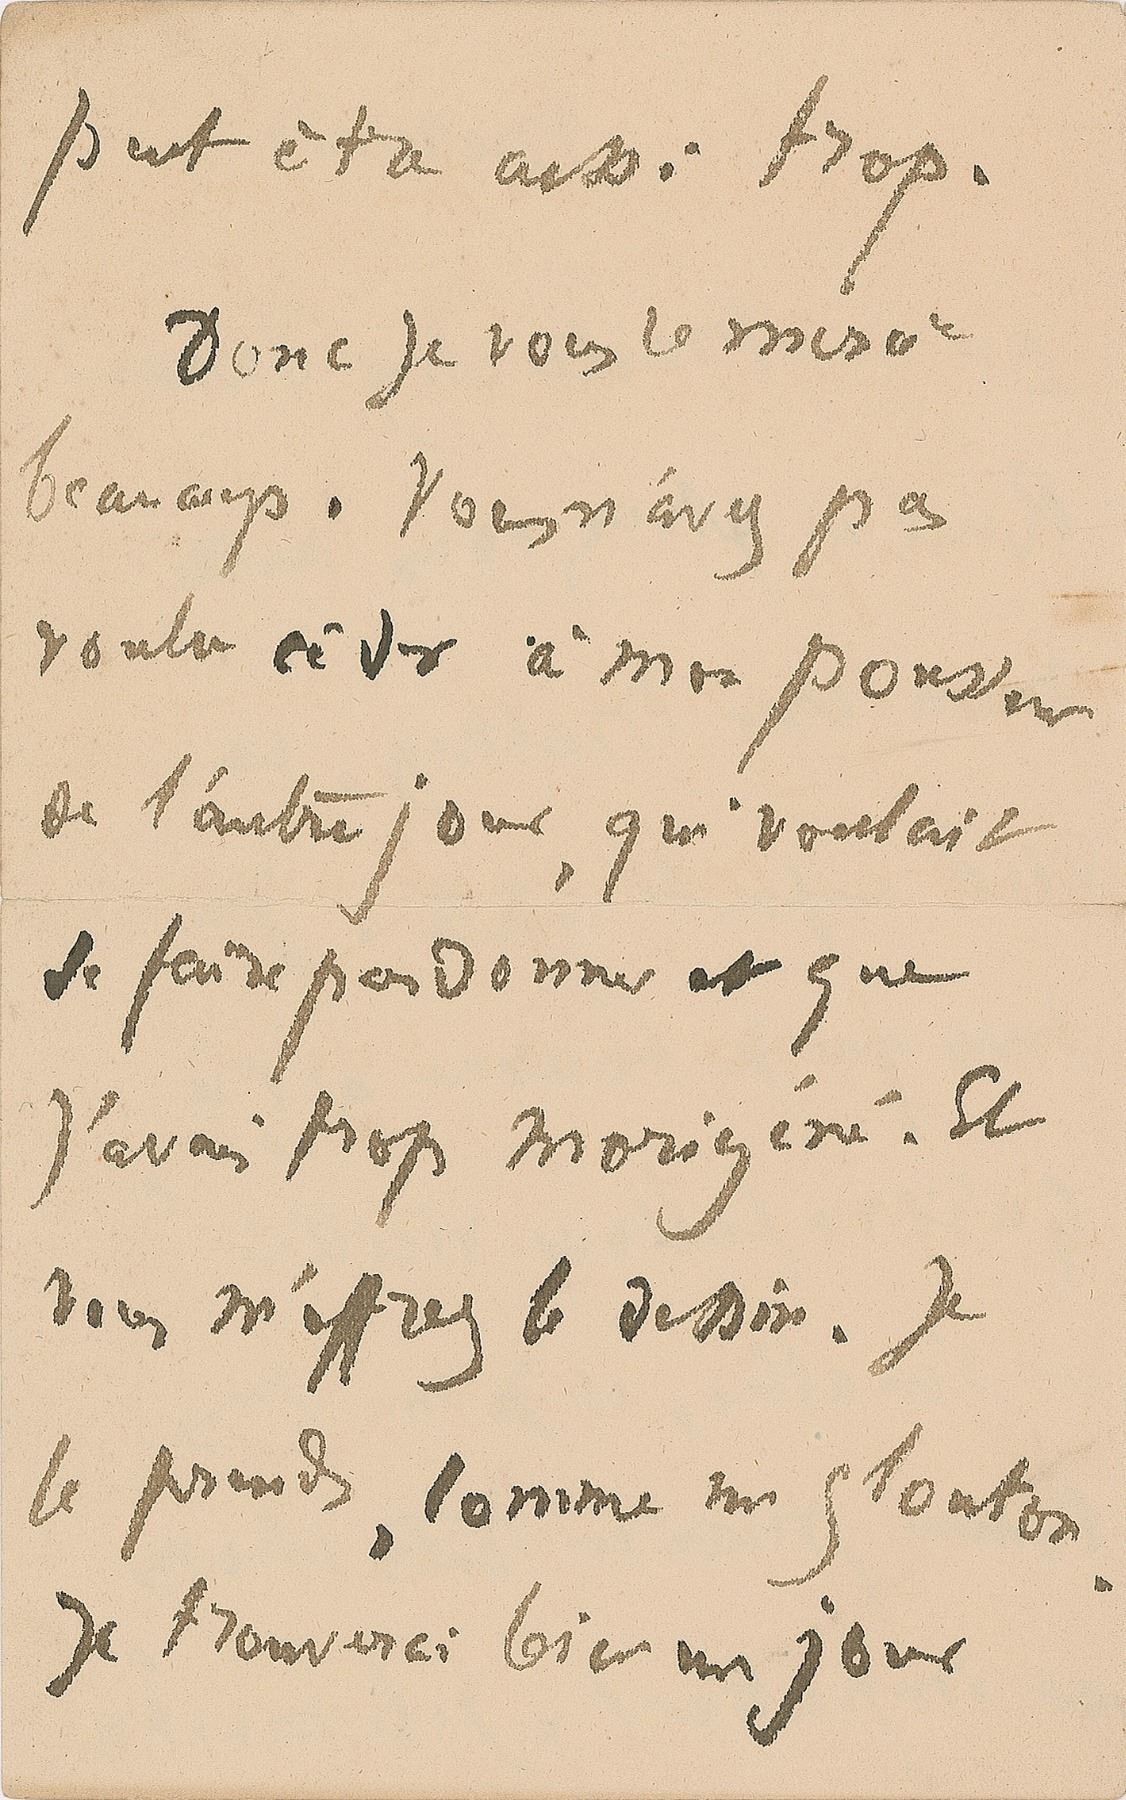 peut être aussi trop.
Donc je vous le merci
beaucoup. Vous n'avez pas
voulu céder à mon
de l'autre jour, qui voulait
se faire pardonner et que
j'avais trop morigéné. Et
vous m'offrez le dessin. Je
le prends, comme un glouton.
Je trouverai bien un jour